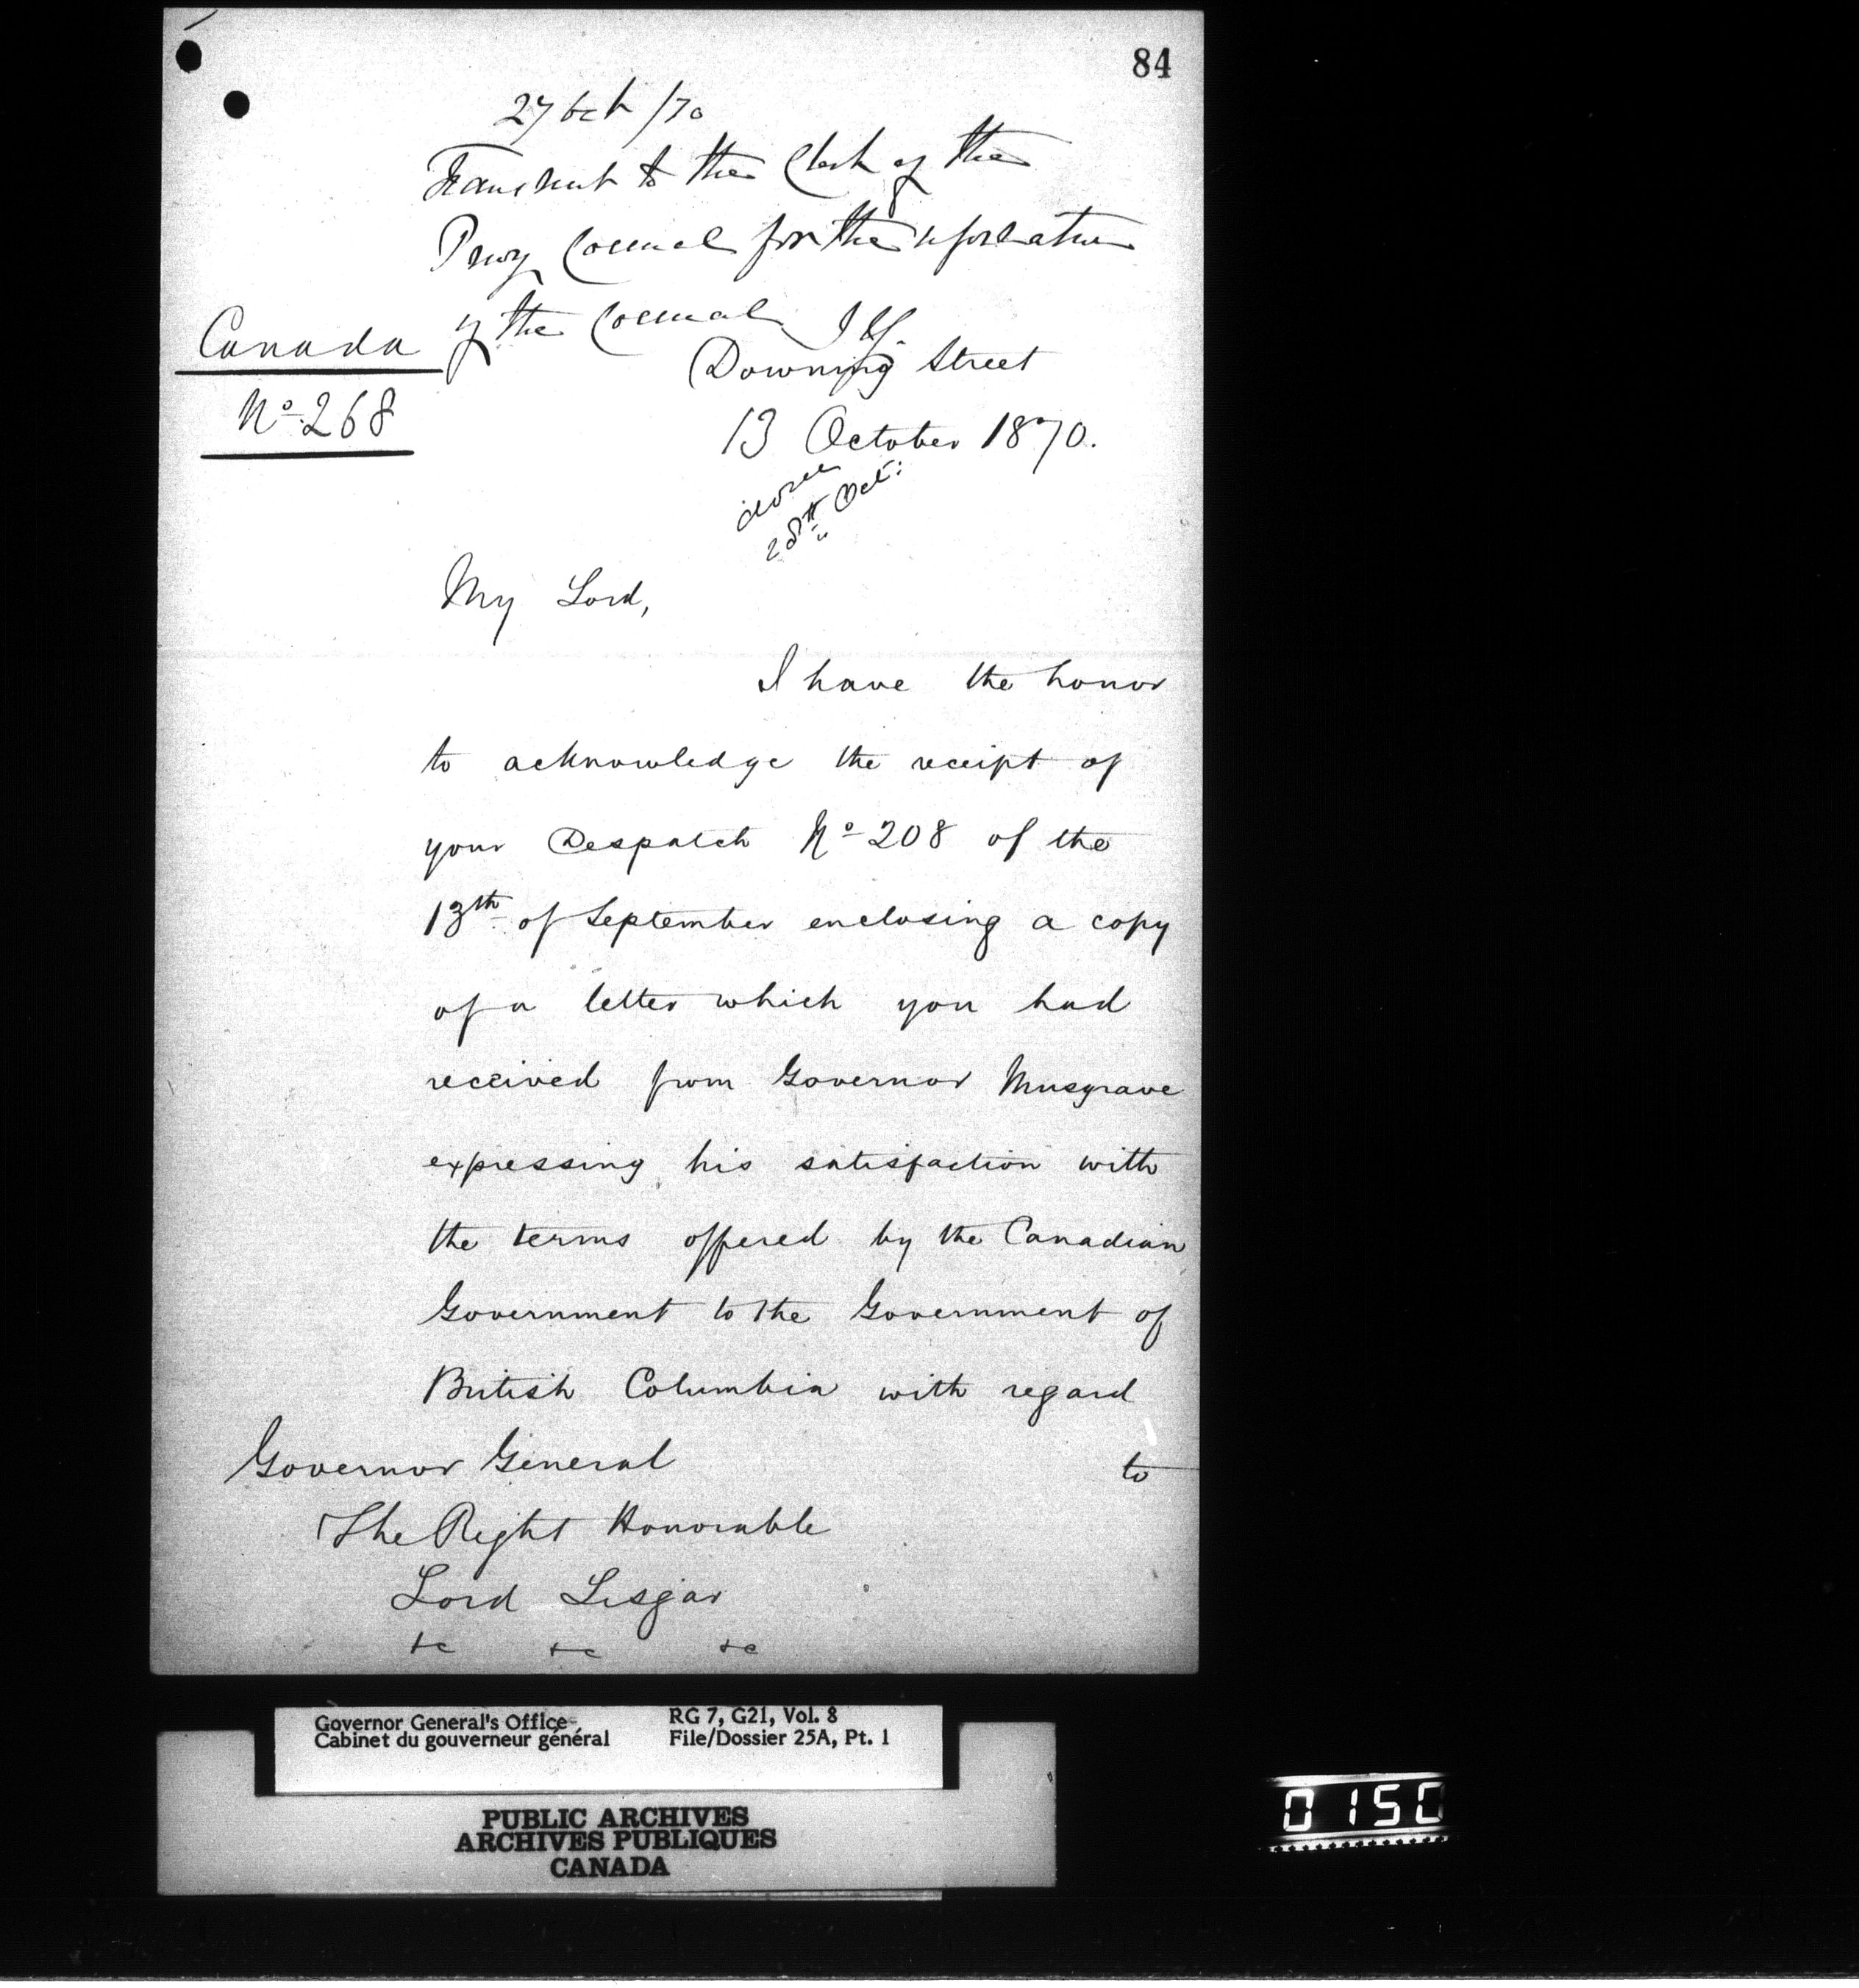 84
27 Oct /70
Transmit to the Clerk of the
Privy Council for the information
of the Council
Canada
No. 268
Downing Street
13 October 1870.
28th Oct:
My Lord,
I have the honor
to acknowledge the receipt of
your Despatch No 208 of the
13th of September enclosing a copy
of a letter which you had
received from Governor Musgrave
expressing his satisfaction with
the terms offered by the Canadian
Government to the Government of
British Columbia with regard
to
Governor General
The Right Honorable
Lord Lisgar
&c &c &c
Governor General's Office
Cabinet du gouverneur général
RG 7, G21, Vol. 8
File/Dossier 25A, Pt. 1
PUBLIC ARCHIVES
ARCHIVES PUBLIQUES
CANADA
0150